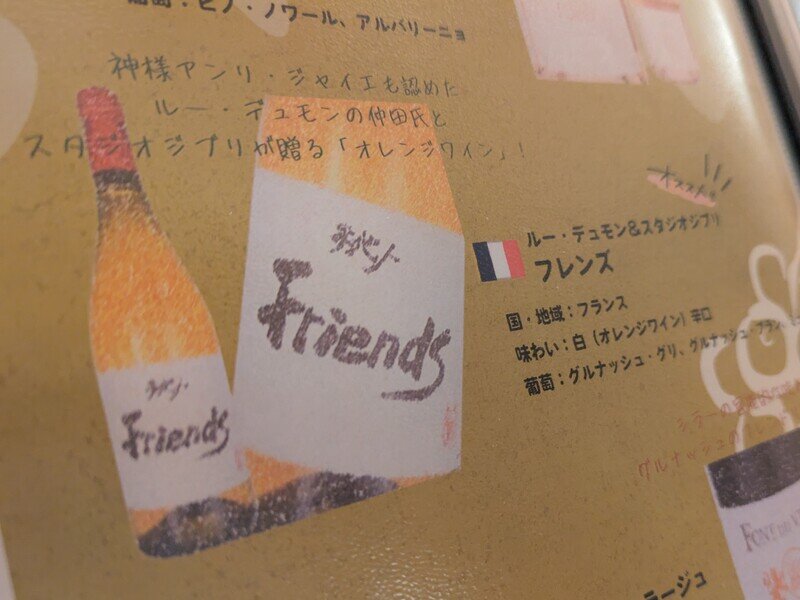 葡萄：ピノ・ノワール、アルバリーニョ
神様アンリ・ジャイエも認めた
ルー・デュモンの仲田氏と
スタジオジブリが贈る「オレンジワイン」！
オススメ!!
ルー・デュモン&スタジオジブリ
フレンズ
国・地域：フランス
味わい：白（オレンジワイン）辛口
葡萄：グルナッシュ・グリ、グルナッシュ・ブラン、
Friends
Friends
シラーの
グルナッシュの
FONT DU
ラージュ